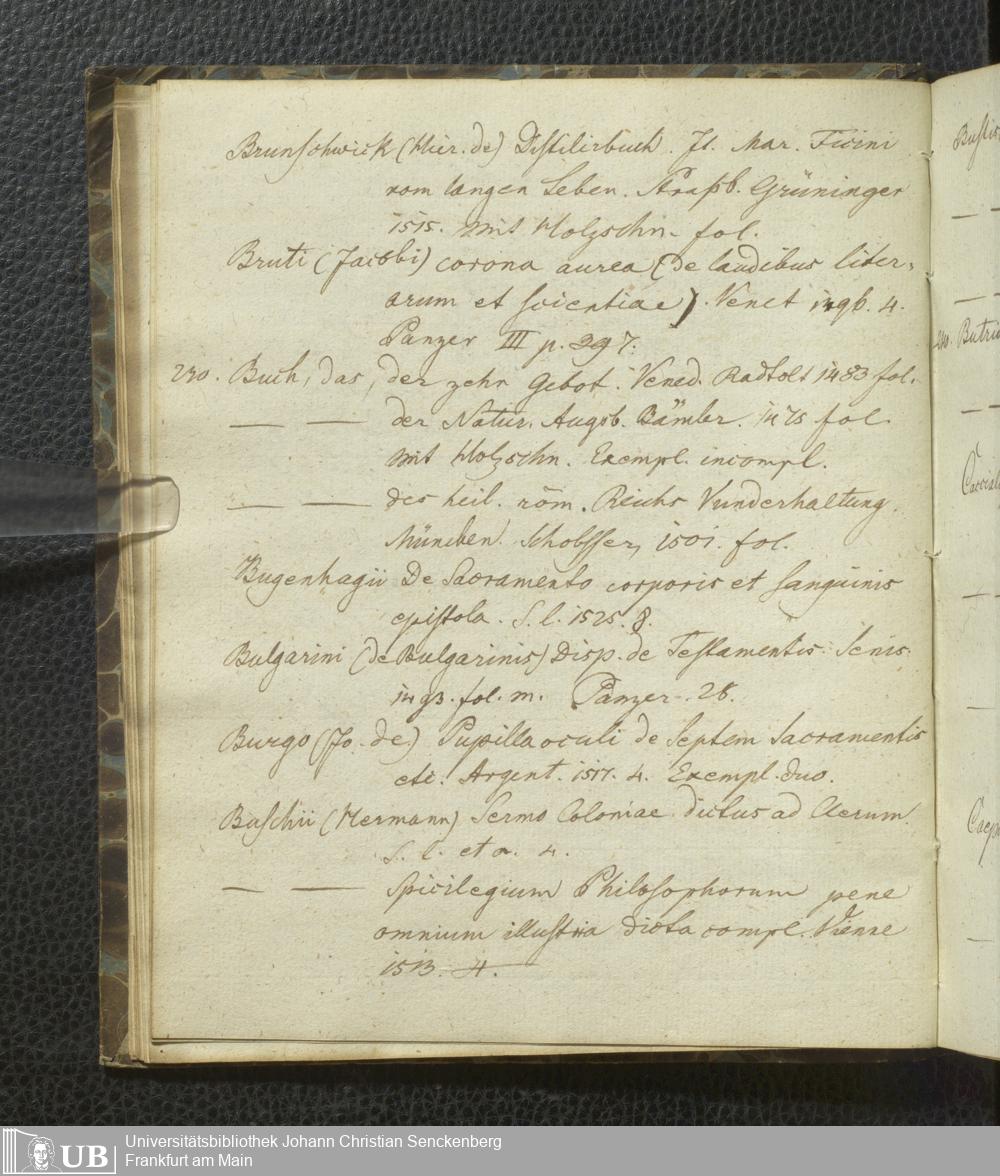 Brunschwick (Hier. de) Distilirbuch. It. Mar. Ficini
vom langen Leben. Straßb. Grüninger
1515. mit Holzschn. fol.
Bruti (Jacobi) corona aurea (de laudibus liter-
arum et scientiae). Venet 1496. 4.
Panzer III p. 297.
230. Buch, das, der zehn Gebot. Vened. Radtolt 1483 fol.
— — der Natur. Augsb. Bämler. 1475 fol
mit Holzschn. Exempl. incompl.
— — des heil. röm. Reichs Vunderhaltung.
München Schobsser, 1501. fol.
Bugenhagii De Sacramento corporis et sanguinis
epistola. S. l. 1525. 8.
Bulgarini (de Bulgarinis) Disp. de Testamentis. Senis
1493. fol. m. Panzer. 28.
Burgo (Jo. de) Pupilla oculi de septem Sacramentis
etc. Argent. 1517. 4. Exempl. duo.
Buschii (Hermann) Sermo Coloniae dictus ad Clerum
S. l. et a. 4.
— — Spicilegium Philosophorum pene
omnium illustria dicta compl. Vienne
1513. 4.
Bustis
Butrio
UB
Universitätsbibliothek Johann Christian Senckenberg
Frankfurt am Main